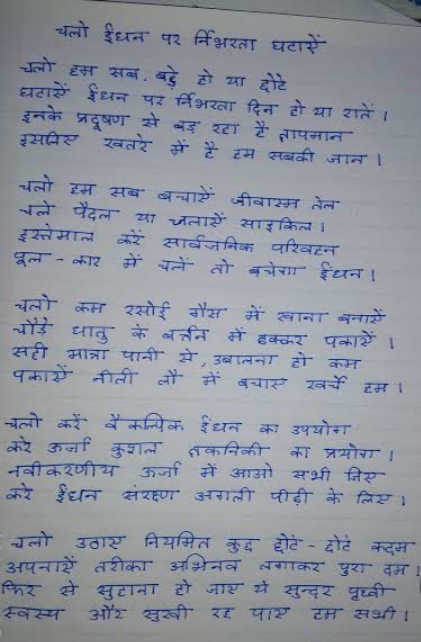 चलो ईंधन पर र्निभरता घटाऐं
चलो हम सब, बड़े हो या छोटे
घटाऐं ईंधन पर र्निभरता दिन हो या रातें।
इनके प्रदूषण से बड़ रहा है तापमान
इसलिए खतरे में है हम सबकी जान।
चलो हम सब बचाऐं जीवास्म तेल
चले पैदल या चलाऐं साइकिल।
इस्तेमाल करें सार्वजनिक परिवहन
पूल - कार में चलें तो बचेगा ईंधन।
चलो कम रसोई गैस में खाना बनाऐं
चौड़े धातु के बर्त्तन में ढक्कर पकाऐं।
सही मात्रा पानी से, उबालना हो कम
पकाऐं नीली लौ में बचाए खर्चे हम।
चलो करें वैकल्पिक ईंधन का उपयोग
करे ऊर्जा कुशल तकनिकी का प्रयोग।
नवीकरणीय ऊर्जा में आओ सभी जिए
करे ईंधन संरक्षण अगली पीढ़ी के लिए।
चलो उठाए नियमित कुछ छोटे - छोटे कदम
अपनाऐं तरीका अभिनव लगाकर पुरा दम।
फिर से सुहाना हो जाए ये सुन्दर पृथ्वी
स्वस्थ और सुखी रह पाए हम सभी।